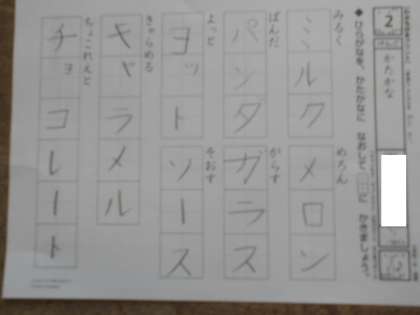 2
かたかな
◆ひらがなを、かたかなに なおして □に かきましょう。
みるく
ミルク
めろん
メロン
ぱんだ
パンダ
がらす
ガラス
よっと
ヨット
そおす
ソース
きゃらめる
キャラメル
ちょこれえと
チョコレート